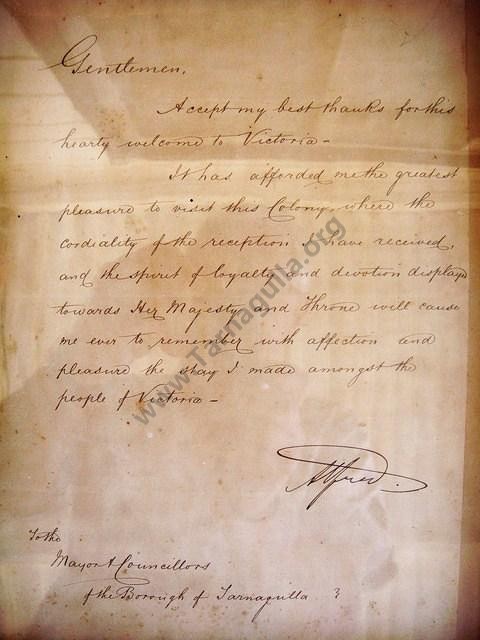 Gentlemen,
Accept my best thanks for this
hearty welcome to Victoria -
It has afforded me the greatest
pleasure to visit this Colony, where the
cordiality of the reception I have received,
and the spirit of loyalty and devotion displayed
towards Her Majesty and Throne will cause
me ever to remember with affection and
pleasure the stay I made amongst the
people of Victoria -
Alfred.
To the
Mayor & Councillors
of the Borough of Tarnagulla
www.Tarnagulla.org